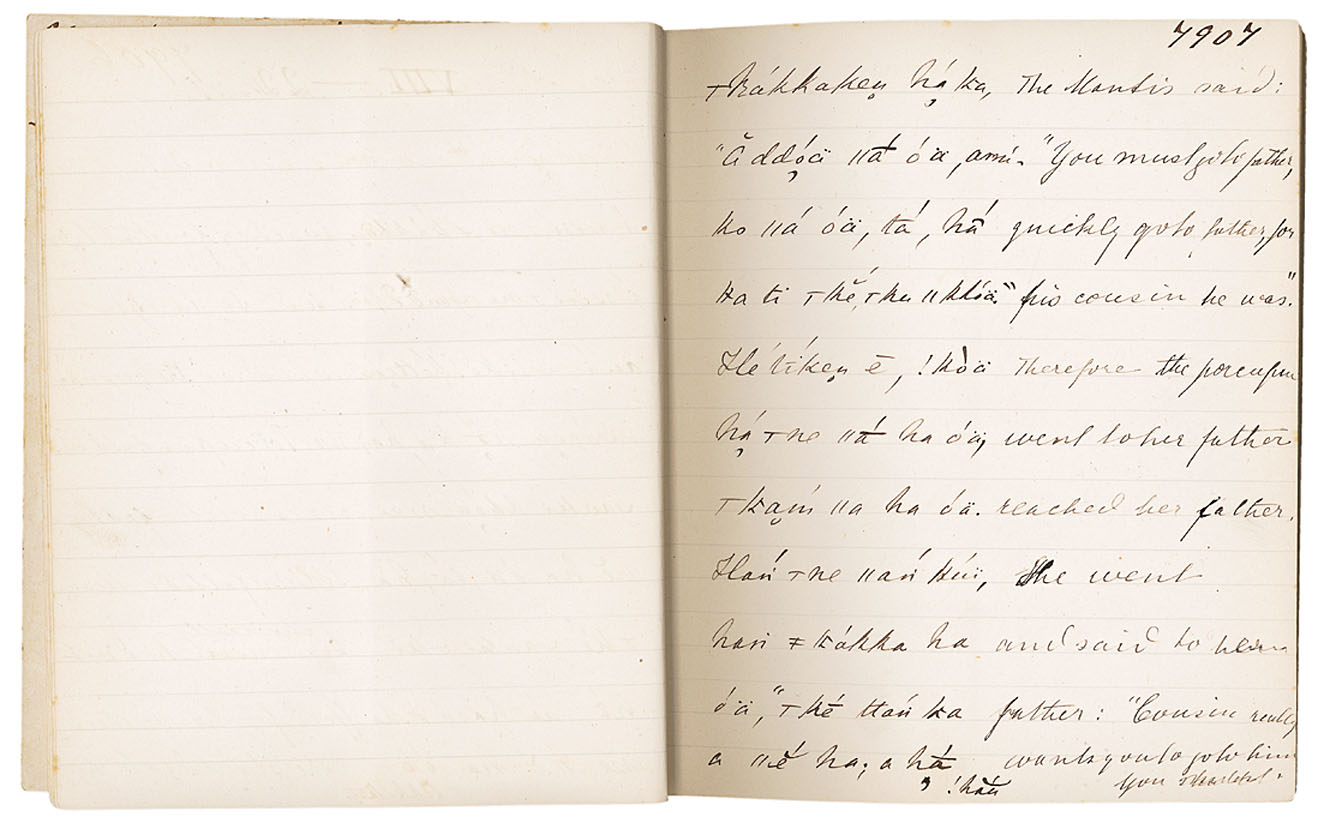 7907
⊤kákkaken há ka, The Mantis said:
"Ă ddóä ǁā́ óä, amí- "You must go to father,
ko ǁá óä, tá, hā́ quickly go to father, for
ka ti ⊤kĕ́, ⊤ku ǁkóä." his cousin he was."
Hé tíken ē, !kòä Therefore the porcupine
há ⊤ne ǁā́ ha óä, went to her father
⊤kam̄́ ǁa ha óä. reached her father.
Hań ⊤ne ǁań kúï, She went
hań ǂkákka ha and said to her
óä, "⊤ké ttań ka father: "Cousin really
a ǁĕ́ ha; a hā́ wants you to go to him
!háu You